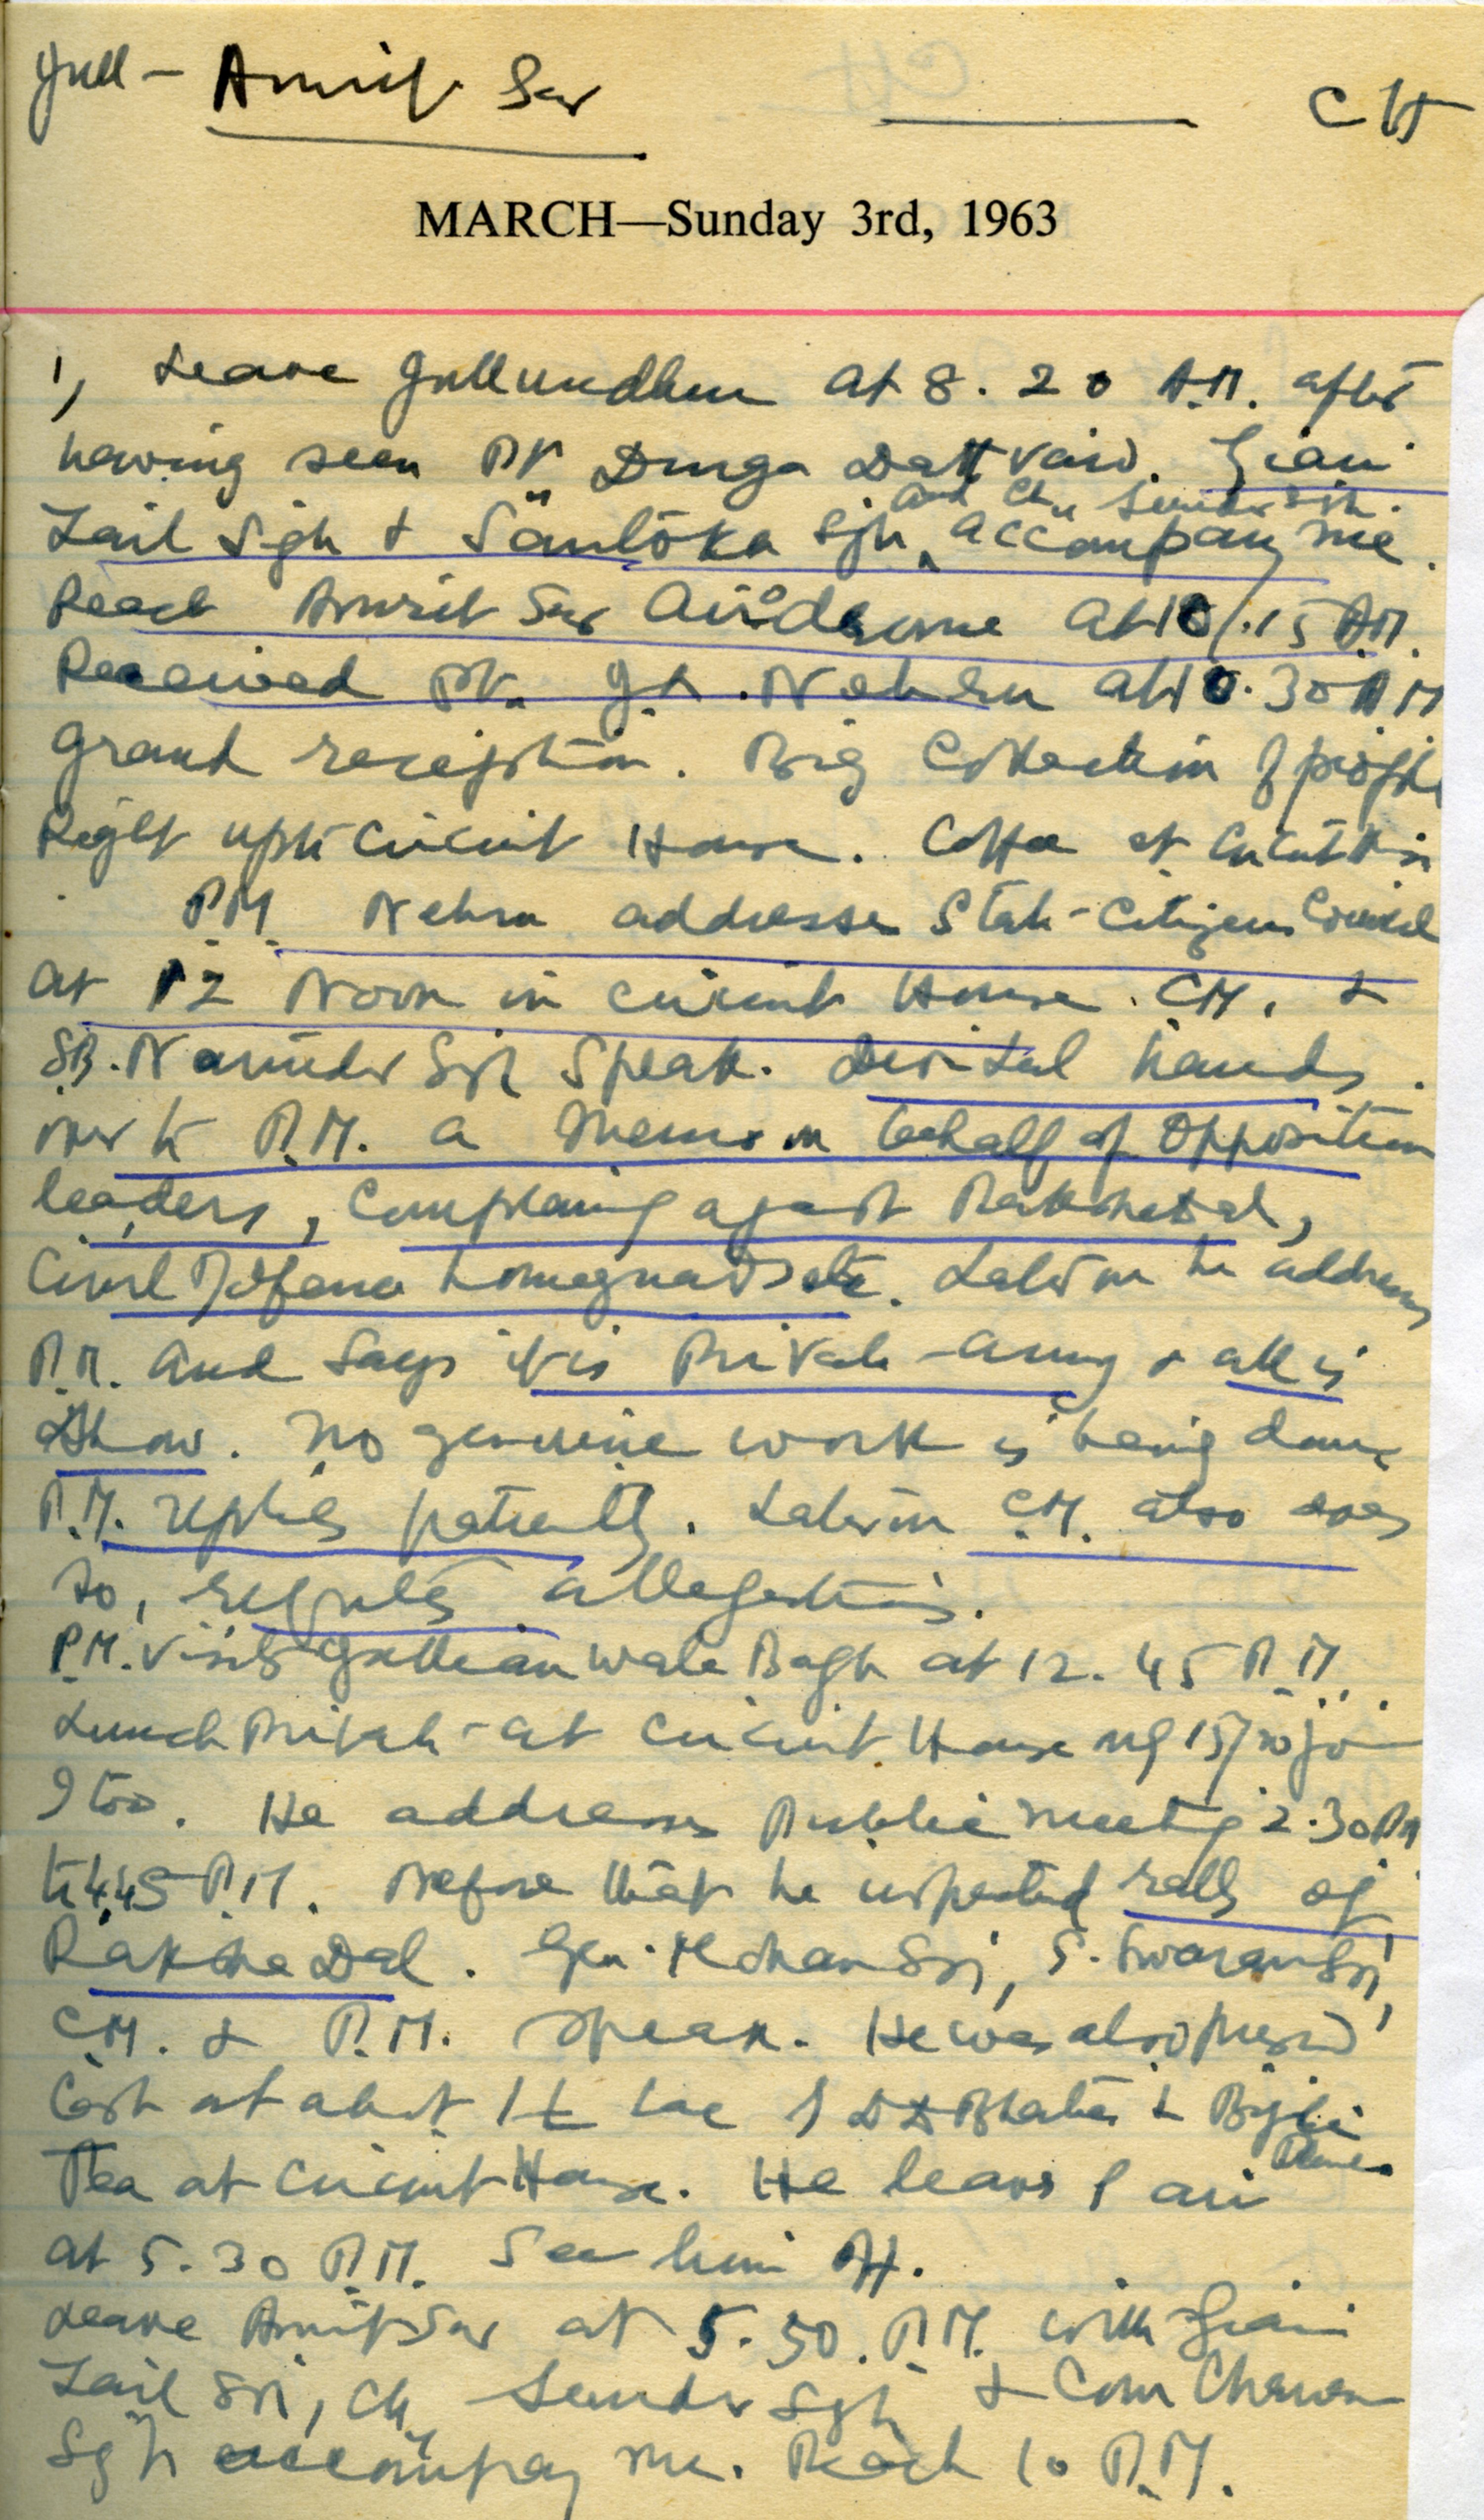 Jull - Amrit Sar ——— CH
MARCH—Sunday 3rd, 1963
1, Leave Jullundhur at 8.20 A.M. after
having seen Pt Durga Datt Vaid. Giani
and Ch. Sunder Sgh.
Zail Sgh & Santokh Sgh accompany me.
Reach Amrit Sar Airodrome at 10.15 A.M.
Received Pt. J.L. Nehru at 10.30 A.M
grand reception. Big Collection of people
Right upto Circuit House. Coffee at Circuit House
P.M. Nehru addresses State-Citizens Council
at 12 Noon in Circuit House. C.M. &
SB. Narinder Sgh Speak. hands
over to P.M. a memo on behalf of Opposition
leaders, Complaining against Rakshadal,
Civil Defence homeguards etc. Later on he address
P.M. and Says it is Private-army & all is
Show. No genuine work is being done
P.M. replies patiently. Later on C.M. also does
so, refutes allegations.
P.M. Visits Jallian wala Bagh at 12.45 P.M.
Lunch Private-at Circuit House 15/20 join
I too. He address Public meeting 2.30 PM
to 4.45 P.M. Before that he inspected rally of
Raksha Dal. Gen. Mohan Sgh, S. Swaran Sgh,
C.M. & P.M. speak. He was also present
Cash at about lac D D Bhatia &
Tea at Circuit House. He leaves by air
at 5.30 P.M. See him off.
Leave Amritsar at 5.50 P.M. with Giani
Zail Sgh, Ch. Sunder Sgh & Com Chanan
Sgh accompany me. Reach 10 P.M.